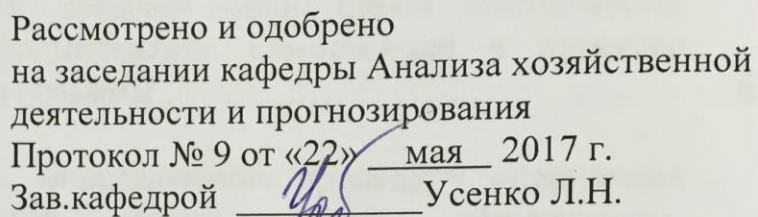 Рассмотрено и одобрено
на заседании кафедры Анализа хозяйственной
деятельности и прогнозирования
Протокол № 9 от «22» мая 2017 г.
Зав.кафедрой Усенко Л.Н.